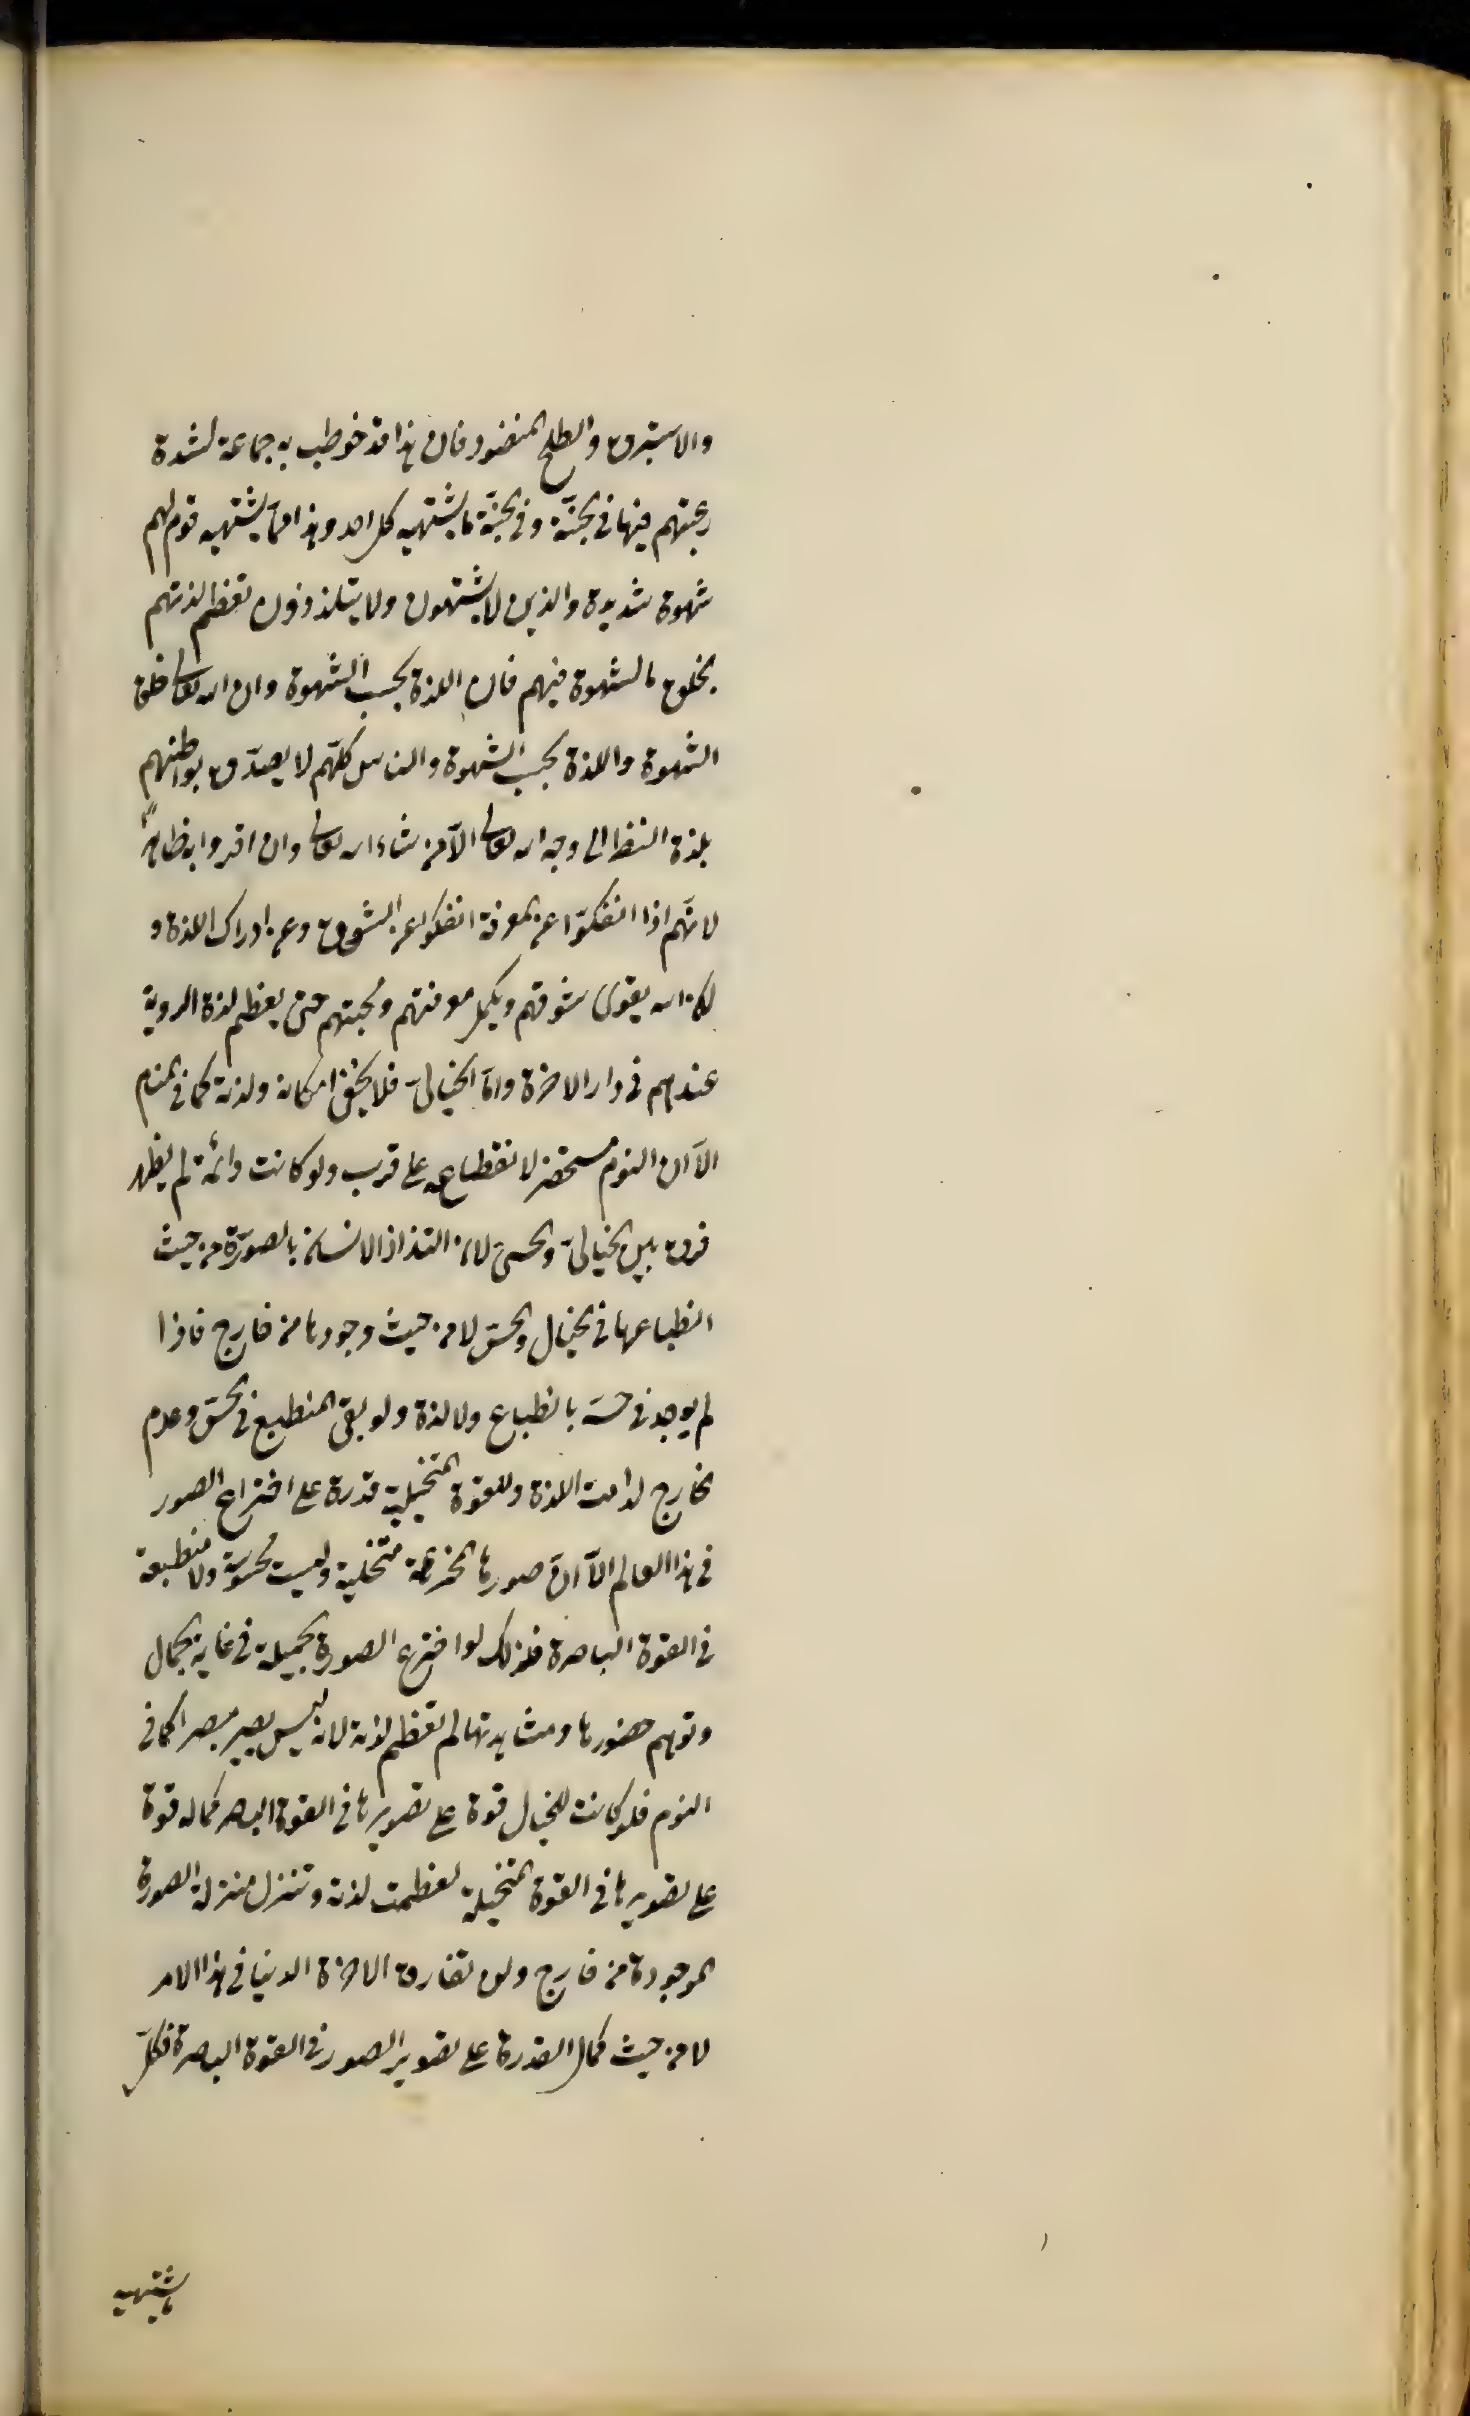 والاستبرق والطلح المنضود فان هذا قد خوطب به جماعة لشدة
رغبتهم فيها في الجنة وفي الجنة ما يشتهيه كل احد وهذا مما يشتهيه قوم لهم
شهوة شديدة والذين لا يشتهون ولا يتلذذون تعظم لذتهم
بخلق الشهوة فيهم فان اللذة بحسب الشهوة وان الله تعالى خلق
الشهوة واللذة بحسب الشهوة والناس كلّهم لا يصدّق بواطنهم
بلذة النظر الى وجه الله تعالى الاّ من شاء الله تعالى وان اقروا به ظاهراً
لانهّم اذا انفكوّا عن المعرفة انفكوا عن الشوق وعن ادراك اللذة و
لكن الله يقوى شوقهم ويكمل معرفتهم ومحبتهم حتى يعظم لذة الروية
عندهم في دار الاخرة وامّا الخيالىّ فلا يخفى امكانه ولذته كما في المنام
الاّ ان النوم مستحقر لانقطاعه على قرب ولو كانت دائمة لم يظهر
فرق بين الخيالىّ والحسىّ لان التذاذ الانسان بالصورة من حيث
انطباعها في الخيال والحسّ لا من حيث وجودها من خارج فاذا
لم يوجد في حسّه بانطباع ولا لذة ولو بقى المنطبع في الحسّ وعدم
الخارج لدامت اللذة وللقوة المتخيلية قدرة على اختراع الصور
في هذا العالم الاّ انّ صورها المخترعة متخلية وليست محسوسة ولا منطبعة
في القوة الباصرة فلذلك لو اخترع الصورة الجميلة في غاية الجمال
وتوهم حضورها ومشاهدتها لم تعظم لذته لانه ليس يصير مبصرا كما في
النوم فلو كانت للخيال قوة على تصويرها في القوة البصر كماله قوة
على تصويرها في القوة المتخيلة لعظمت لذته وتنزل منزلة الصورة
الموجودة من خارج ولن تفارق الاخرة الدنيا في هذا الامر
لا من حيث كمال القدرة على تصوير الصور في القوة الباصرة فكلّ
ما يشتهيه